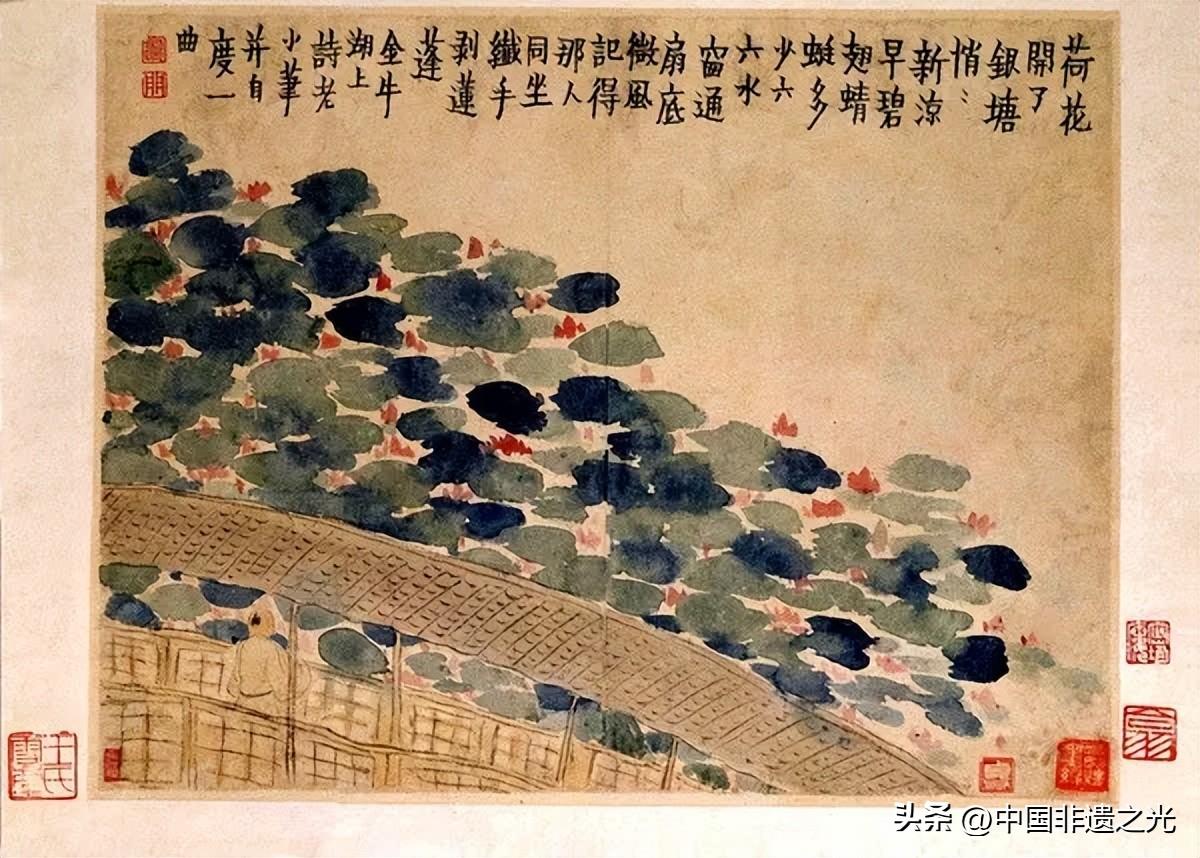 荷花
開了
銀塘
悄〻
新涼
早碧
翅蜻
蜓多
少六
六水
窗通
扇底
微風
記得
那人
同坐
纖手
剥蓮
蓬
金牛
湖上
詩老
小筆
并自
度一
曲
头条 @中国非遗之光